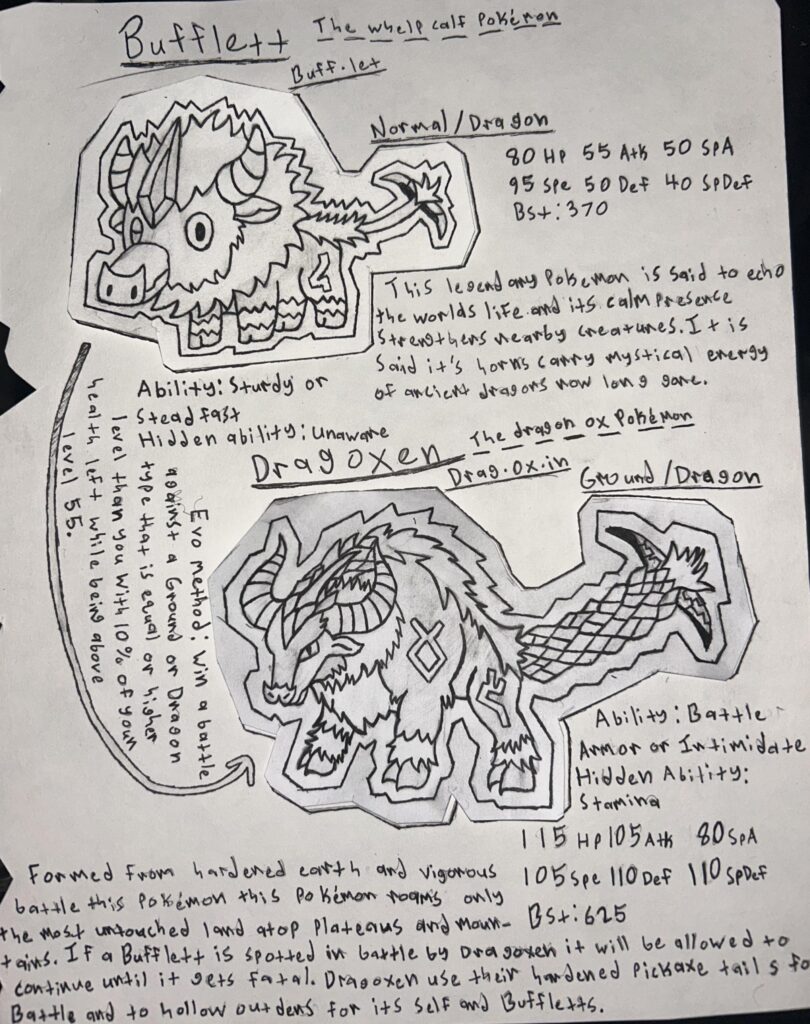 Bufflett
The whelp calf Pokémon
Buff.let
Normal/Dragon
80 HP 55 Atk 50 SpA
95 Spe 50 Def 40 SpDef
Bst:370
This legendary Pokemon is said to echo
the worlds life and its calm presence
strengthens nearby creatures. It is
said it's horns carry mystical energy
of ancient dragons now long gone.
Ability: Sturdy or
Steadfast
Hidden ability: Unaware
Evo method: Win a battle
against a Ground or Dragon
type that is equal or higher
level than you with 10% of your
health left while being above
level 55.
Dragoxen
The dragon ox Pokémon
Drag.ox.in
Ground/Dragon
Ability: Battle
Armor or Intimidate
Hidden Ability:
Stamina
115 HP 105 Atk 80 SpA
105 Spe 110 Def 110 SpDef
Bst:625
Formed from hardened earth and vigorous
battle this Pokémon this Pokémon roams only
the most untouched land atop plateaus and moun-
tains. If a Bufflett is spotted in battle by Dragoxen it will be allowed to
continue until it gets fatal. Dragoxen use their hardened pickaxe tails for
Battle and to hollow out dens for its self and Buffletts.